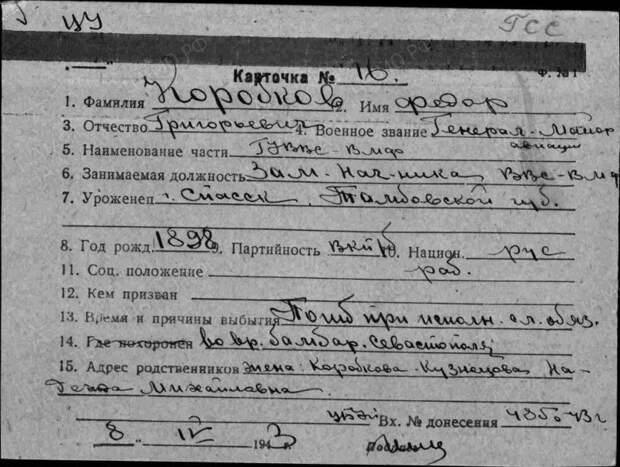 ЦУ ГСС
Карточка № 16. Ф. №1
1. Фамилия Коробков 2. Имя Федор
3. Отчество Григорьевич 4. Военное звание Генерал-майор авиации
5. Наименование части ГУВВС-ВМФ
6. Занимаемая должность Зам. Нач-ника ВВС-ВМФ
7. Уроженец г. Спасск, Тамбовской губ.
8. Год рожд. 1898 9. Партийность ВКПб 10. Национ. рус
11. Соц. положение раб.
12. Кем призван
13. Время и причины выбытия Погиб при исполн. сл. обяз.
14. Где похоронен во вр. бомбар. Севастополя
15. Адрес родственников жена: Коробкова-Кузнецова На-
Михайловна.
Вх. № донесения
8 " IV 1943 г.